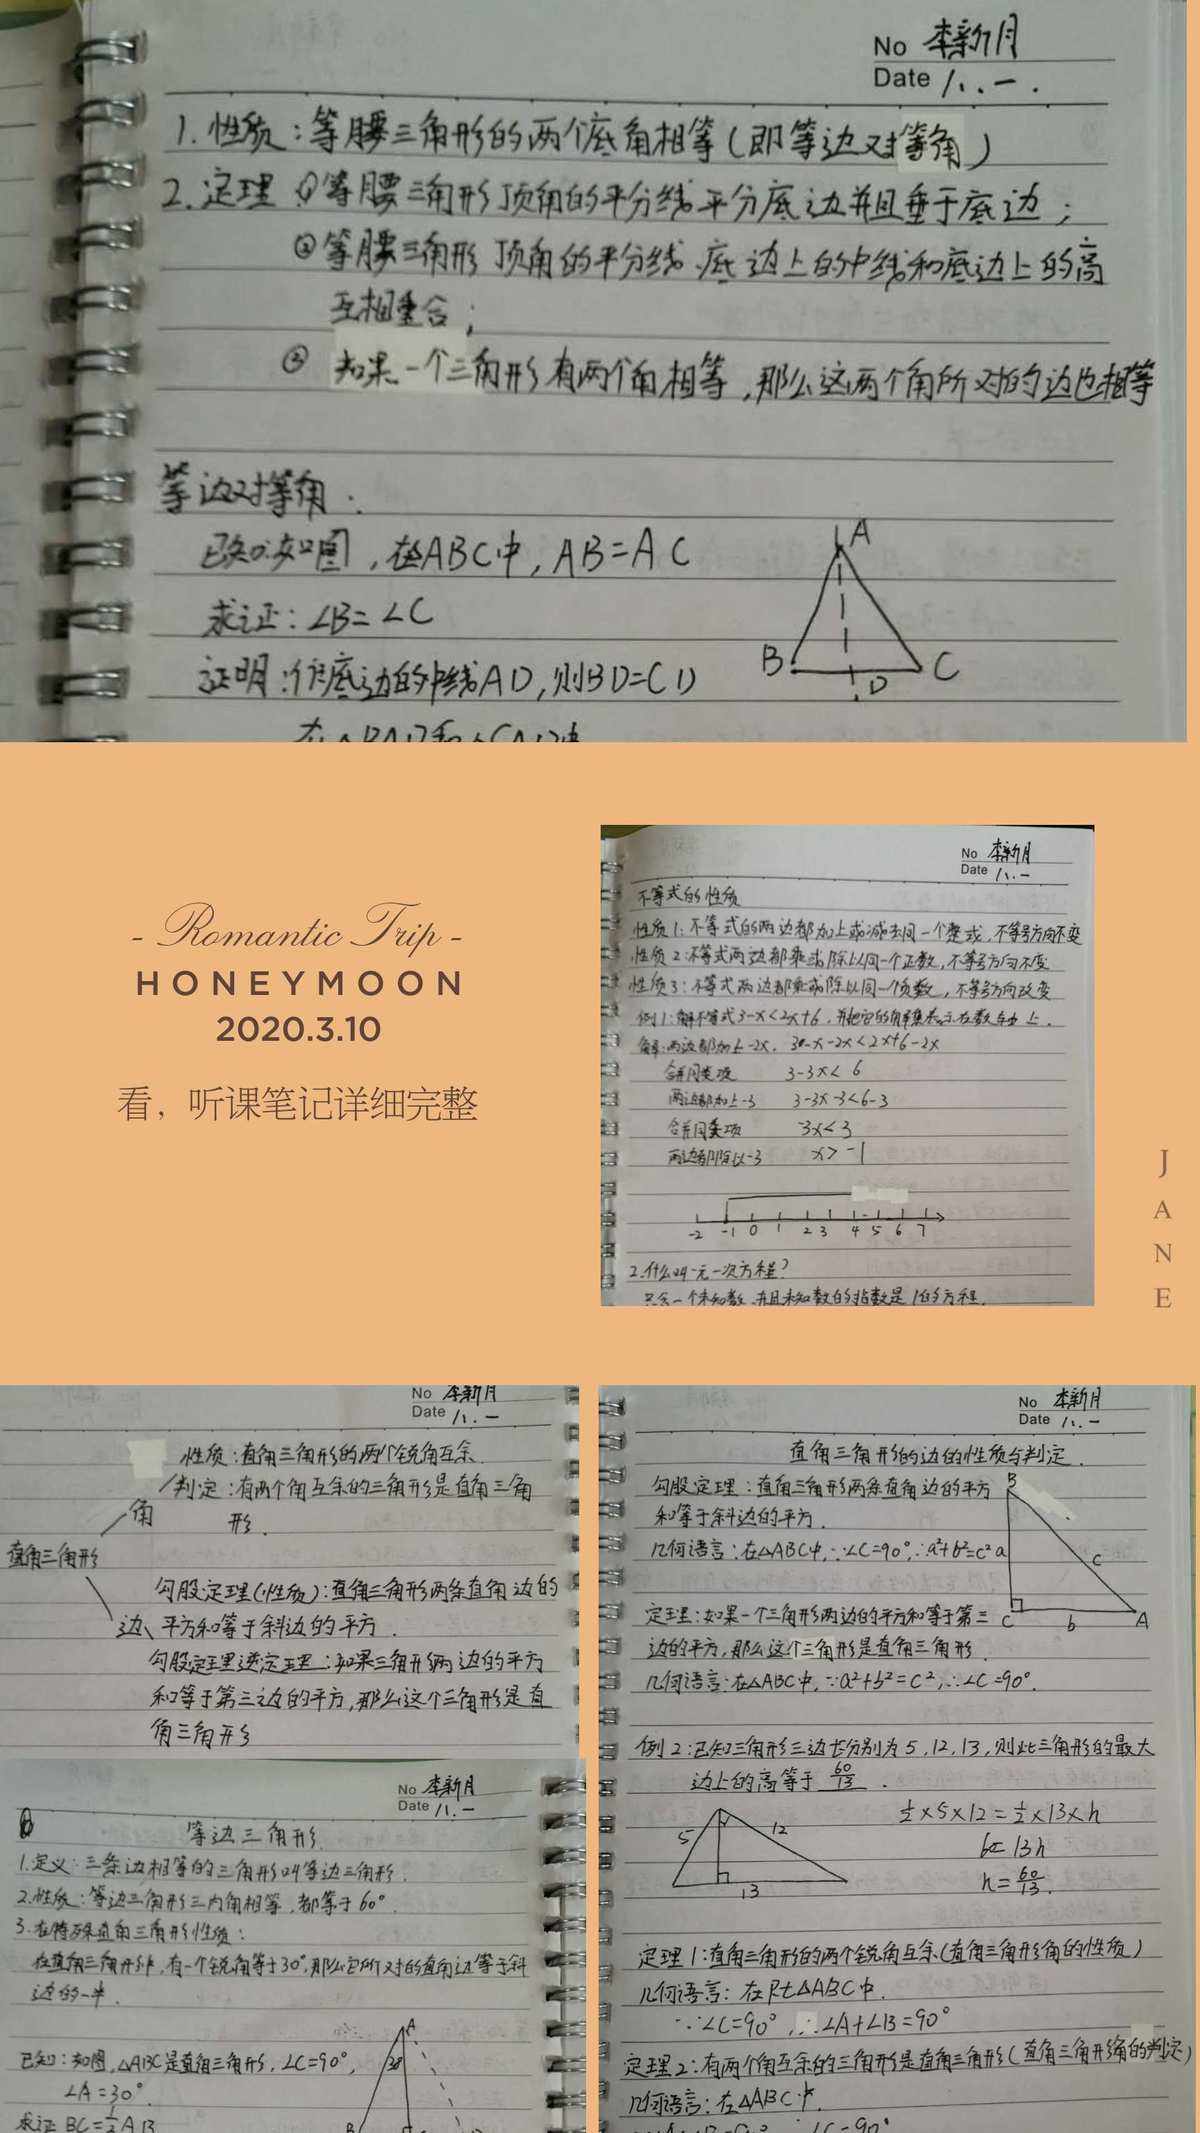 No 李新月
Date 八.一.
1.性质:等腰三角形的两个底角相等(即等边对等角)
2.定理 ①等腰三角形顶角的平分线平分底边并且垂于底边;
②等腰三角形顶角的平分线.底边上的中线和底边上的高
互相重合;
③ 如果一个三角形有两个角相等,那么这两个角所对的边也相等
等边对等角.
已知:如图,在△ABC中,AB=AC
求证:∠B=∠C
证明:作底边的中线AD,则BD=CD
在△BAD和△CAD中
A
B
D
C
- Romantic Trip -
HONEYMOON
2020.3.10
看，听课笔记详细完整
JANE
No 李新月
Date 八.一
不等式的性质
性质1:不等式的两边都加上或减去同一个整式,不等号方向不变
性质2:不等式两边都乘或除以同一个正数,不等号方向不变
性质3:不等式两边都乘或除以同一个负数,不等号方向改变
例1:解不等式3-x<2x+6,并把它的解集表示在数轴上.
解:两边都加上-2x, 3-x-2x<2x+6-2x
合并同类项 3-3x<6
两边都加上-3 3-3x-3<6-3
合并同类项 -3x<3
两边都除以-3 x>-1
-2 -1 0 1 2 3 4 5 6 7
2.什么叫一元一次方程?
只含一个未知数,并且未知数的指数是1的方程.
No 李新月
Date 八.一
性质:直角三角形的两个锐角互余.
判定:有两个角互余的三角形是直角三角
角 形.
直角三角形
勾股定理(性质):直角三角形两条直角边的
边 平方和等于斜边的平方.
勾股定理逆定理:如果三角形两边的平方
和等于第三边的平方,那么这个三角形是直
角三角形
No 李新月
Date 八.一
等边三角形.
1.定义:三条边相等的三角形叫等边三角形.
2.性质:等边三角形三内角相等,都等于60°.
3.在特殊直角三角形性质:
在直角三角形中,有一个锐角等于30°,那么它所对的直角边等于斜
边的一半.
已知:如图,△ABC是直角三角形,∠C=90°,
∠A=30°.
求证 BC=½AB
A
30°
B
No 李新月
Date 八.一
直角三角形的边的性质与判定.
勾股定理:直角三角形两条直角边的平方
和等于斜边的平方.
几何语言:在△ABC中,∵∠C=90°,∴a²+b²=c²
定理:如果一个三角形两边的平方和等于第三
边的平方,那么这个三角形是直角三角形.
几何语言:在△ABC中,∵a²+b²=c²,∴∠C=90°.
B
a
c
C
b
A
例2:已知三角形三边长分别为5,12,13,则此三角形的最大
边上的高等于 60/13 .
5
12
13
½×5×12=½×13×h
60=13h
h=60/13.
定理1:直角三角形的两个锐角互余(直角三角形角的性质)
几何语言:在Rt△ABC中.
∵∠C=90°,∴∠A+∠B=90°
定理2:有两个角互余的三角形是直角三角形(直角三角形角的判定)
几何语言:在△ABC中.